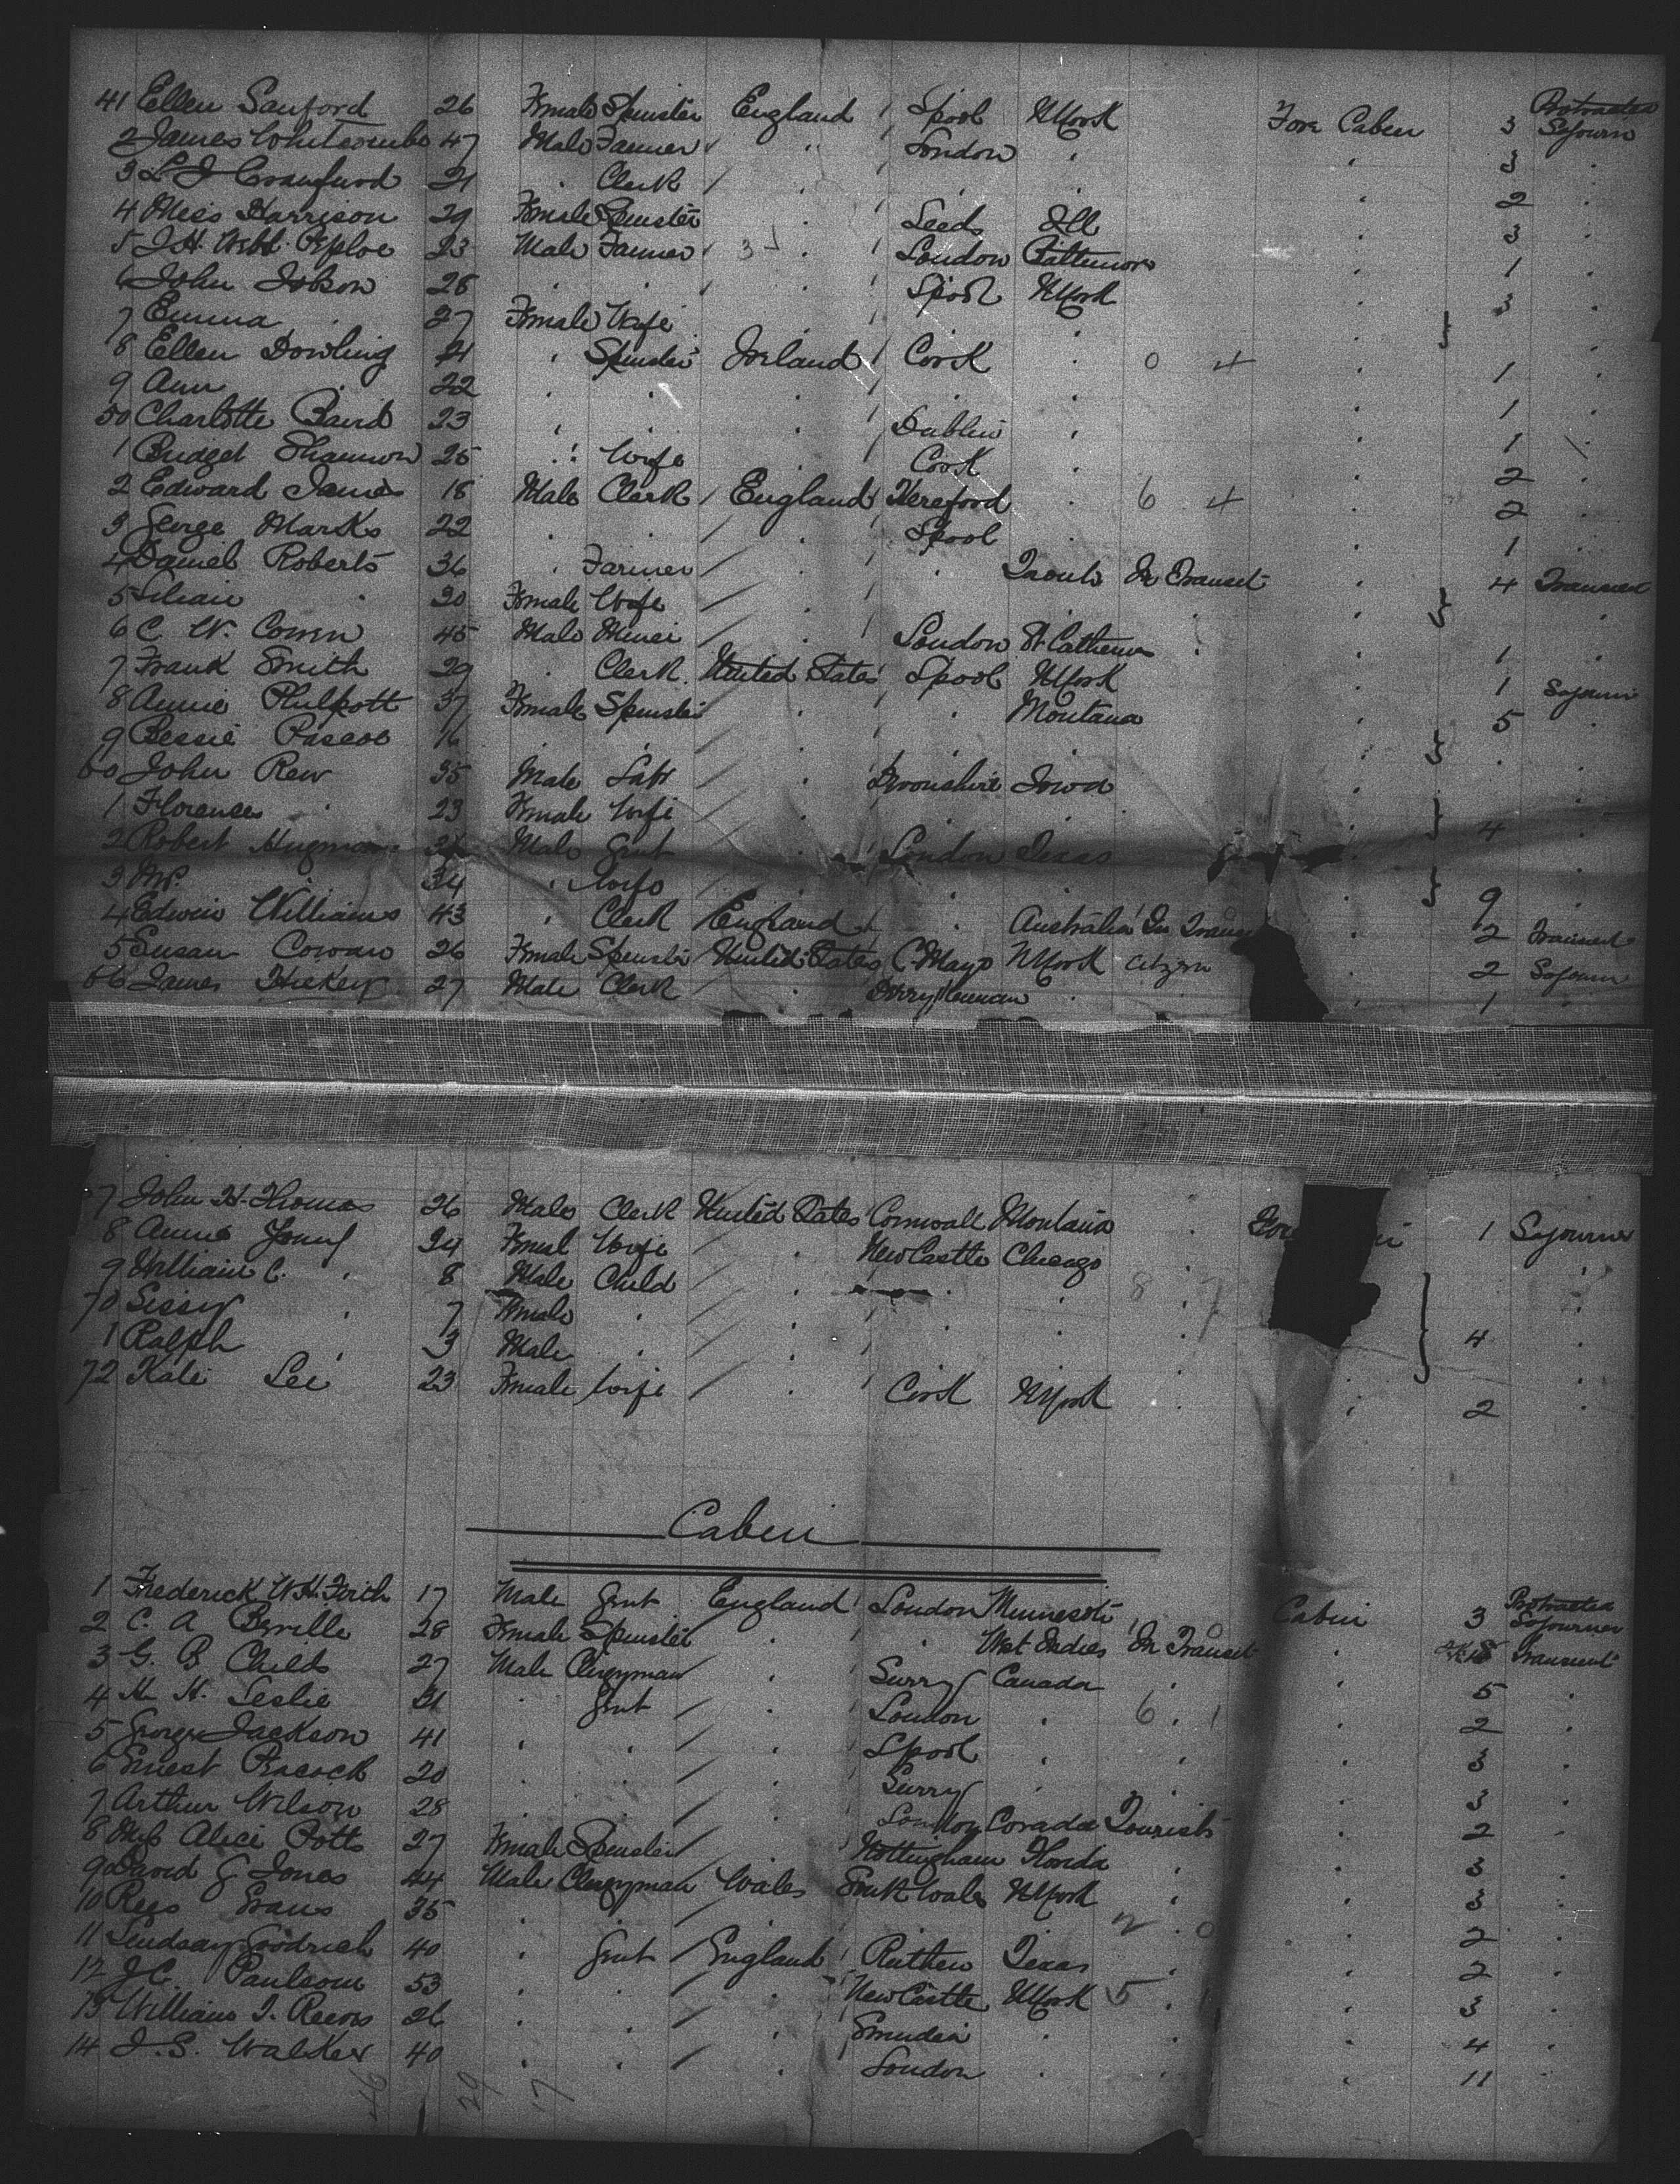 41 Ellen Sanford 26 Female Spinster England L'pool N York Fore Cabin 3 Protracted Sojourn
2 James Whitcombe 47 Male Farmer " London " " 3 "
3 L J Craufurd 21 " Clerk " " " " 2 "
4 Miss Harrison 29 Female Spinster " Leeds Ill " 3 "
5 J. H. Webb Peploe 23 Male Farmer " London Baltimore " 1 "
6 John Jobson 28 " " " L'pool N York " 3 "
7 Emma " 27 Female Wife " " " "
8 Ellen Dowling 21 " Spinster Ireland Cork " 0 4 " 1 "
9 Ann " 22 " " " " " " 1 "
50 Charlotte Baird 23 " " " Dublin " " 1
1 Bridget Shannon 25 " Wife " Cork " " 2 "
2 Edward James 18 Male Clerk England Hereford " 6 4 " 2 "
3 George Marks 22 " " " L'pool " 1 "
4 Daniel Roberts 36 " Farmer " " In Transit " 4 Transient
5 20 Female Wife " " " "
6 C. W. 45 Male Miner " London St Catherines " 1 "
7 Frank Smith 29 " Clerk United States L'pool N York " 1 Sojourn
8 Annie Philpott 37 Female Spinster " " Montana " 5 "
9 Bessie Pascoe 16 " " " " " " "
60 John Rew 35 Male Labr " Devonshire Iowa "
1 Florence " 23 Female Wife " " " " 4 "
2 Robert Male Gent " London Texas "
3 Mrs. " 34 " Wife " " " " 9 "
4 Edwin Williams 43 " Clerk England " Australia In Transit " 2 Transient
5 Susan Cowan 26 Female Spinster United States C. Mayo N York Citizen " 2 Sojourn
66 James Hickey 27 Male Clerk " " " 1 "
7 John H. Thomas 26 Male Clerk United States Cornwall Montana 1 Sojourner
8 Annie Young 24 Female Wife " New Castle Chicago "
9 William C. " 8 Male Child " " " 8 7 "
70 Sissy " 7 Female " " " " 4 "
1 Ralph " 3 Male " " " " "
72 Kate Lee 23 Female Wife " Cork N York " 2 "
Cabin
1 Frederick W. H. Firth 17 Male Gent England London Minnesota Cabin 3 Protracted Sojourner
2 C. A. 28 Female Spinster " " West Indies In Transit " Transient
3 G. B. Childs 27 Male Clergyman " Surry Canada " " 5 "
4 H. Leslie 21 " Gent " London " 6 1 " 2 "
5 George Jackson 41 " " " L'pool " " " 3 "
6 Ernest Peacock 20 " " " Surry " " " 3 "
7 Arthur Wilson 28 " " " London Tourist " 2 "
8 Miss Alice Potts 27 Female Spinster " Nottingham Florida " " 3 "
9 David G Jones 44 Male Clergyman Wales South Wales N York " " 3 "
10 Rees Evans 35 " " " " " 2 0 " 2 "
11 Lindsay Goodrich 40 " Gent England Texas " " 2 "
12 J. C. 53 " " " New Castle N York 5 " " 3 "
13 William J. Reeves 26 " " " " " " 4 "
14 J. S. Walker 40 " " " London " " " 11 "
46 29 17